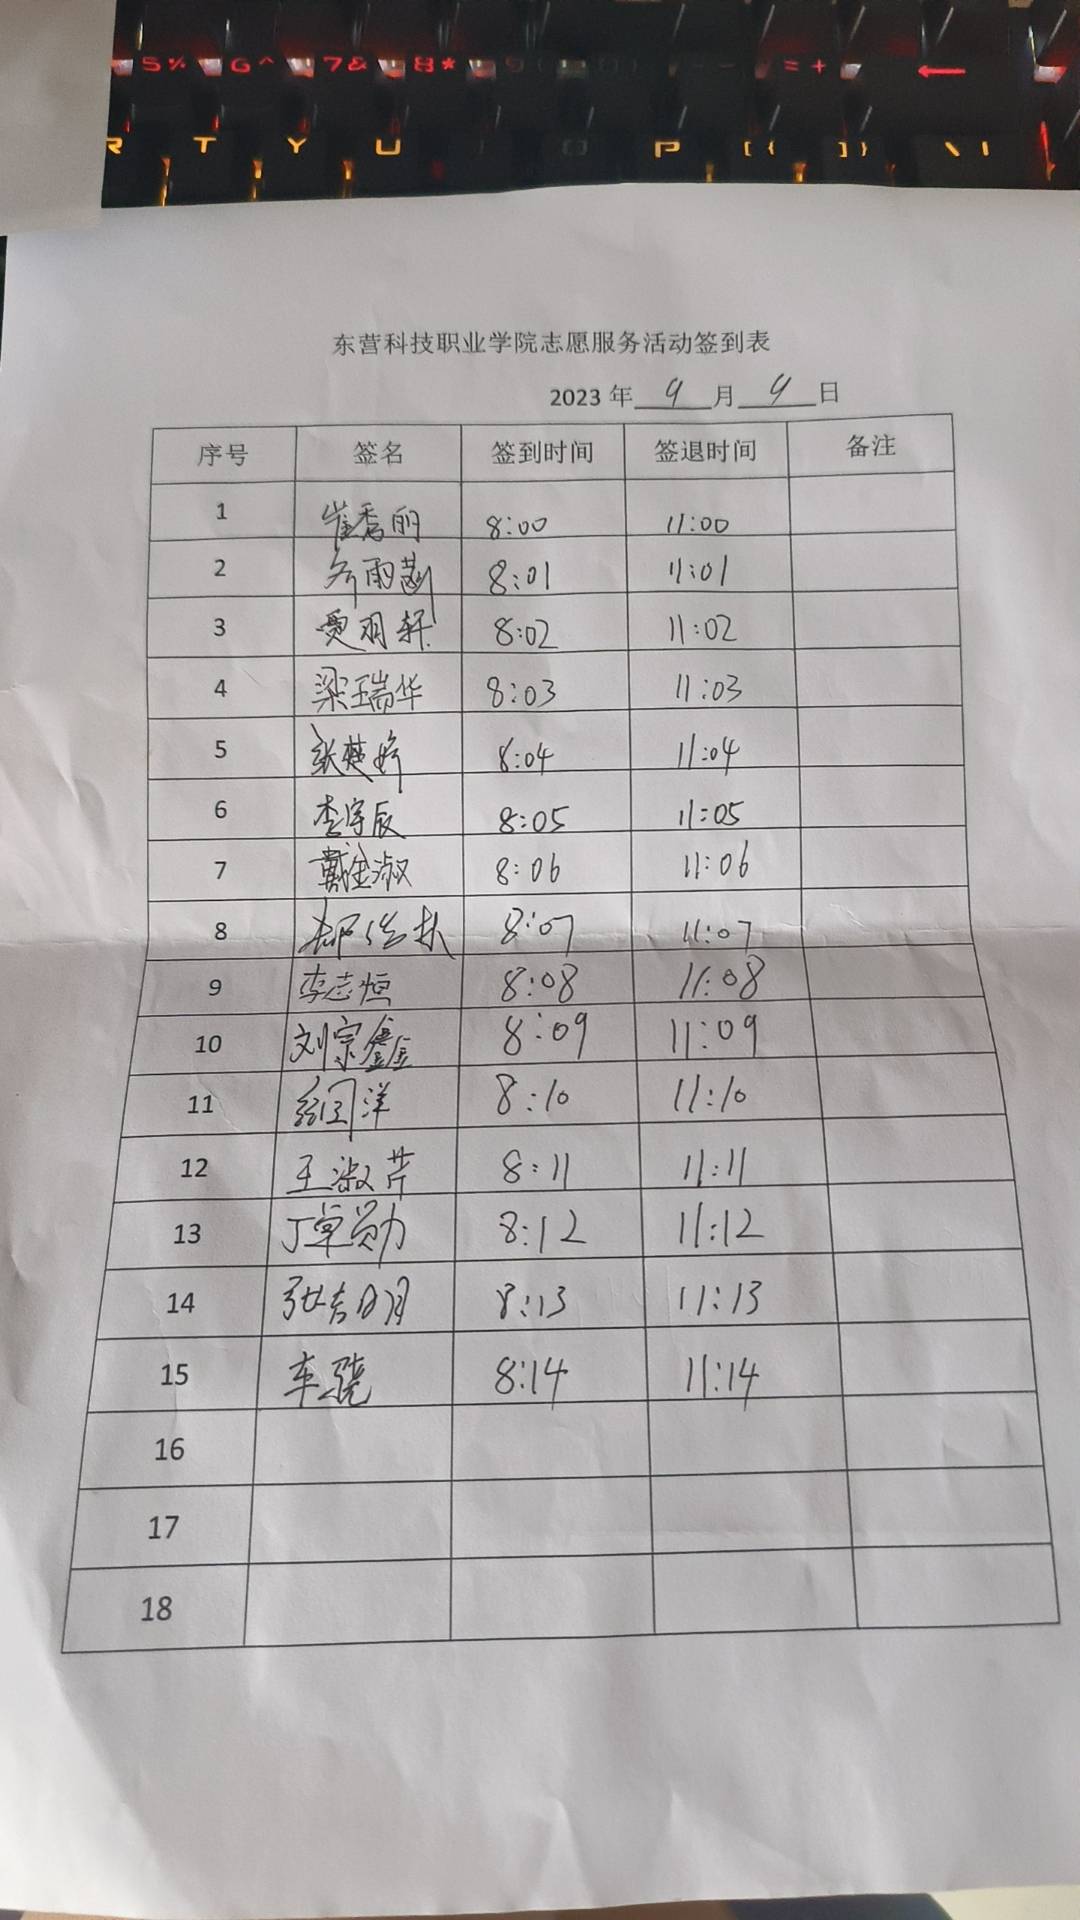 5% 6^ 7& 8* 9( = +
R T Y U O P [ { ] } \ |
东营科技职业学院志愿服务活动签到表
2023 年 9 月 9 日
序号 签名 签到时间 签退时间 备注
1 崔秀丽 8:00 11:00
2 齐雨菡 8:01 11:01
3 贾羽轩 8:02 11:02
4 梁瑞华 8:03 11:03
5 张楚婷 8:04 11:04
6 李宇辰 8:05 11:05
7 戴金淑 8:06 11:06
8 8:07 11:07
9 李志恒 8:08 11:08
10 刘宗鑫 8:09 11:09
11 8:10 11:10
12 王淑芹 8:11 11:11
13 丁卓勋 8:12 11:12
14 张吉明 8:13 11:13
15 车骁 8:14 11:14
16
17
18